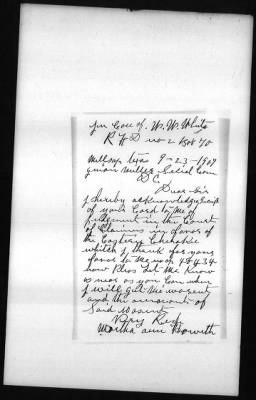 in Care of W. W. White
R F D no 2 Box 70
Millsap Texas 9-23-1909
Dear Sir
I hereby acknowledg
of your Card to me of
Judgment in the Court
of Claims in favor of
the Eastern Cherokee
which I thank for your
favor to me no 48434
now Pleas let me Know
as near as you Can when
I will get the warent
and the amount of
Said warent
Very Resp
Martha ann Howeth